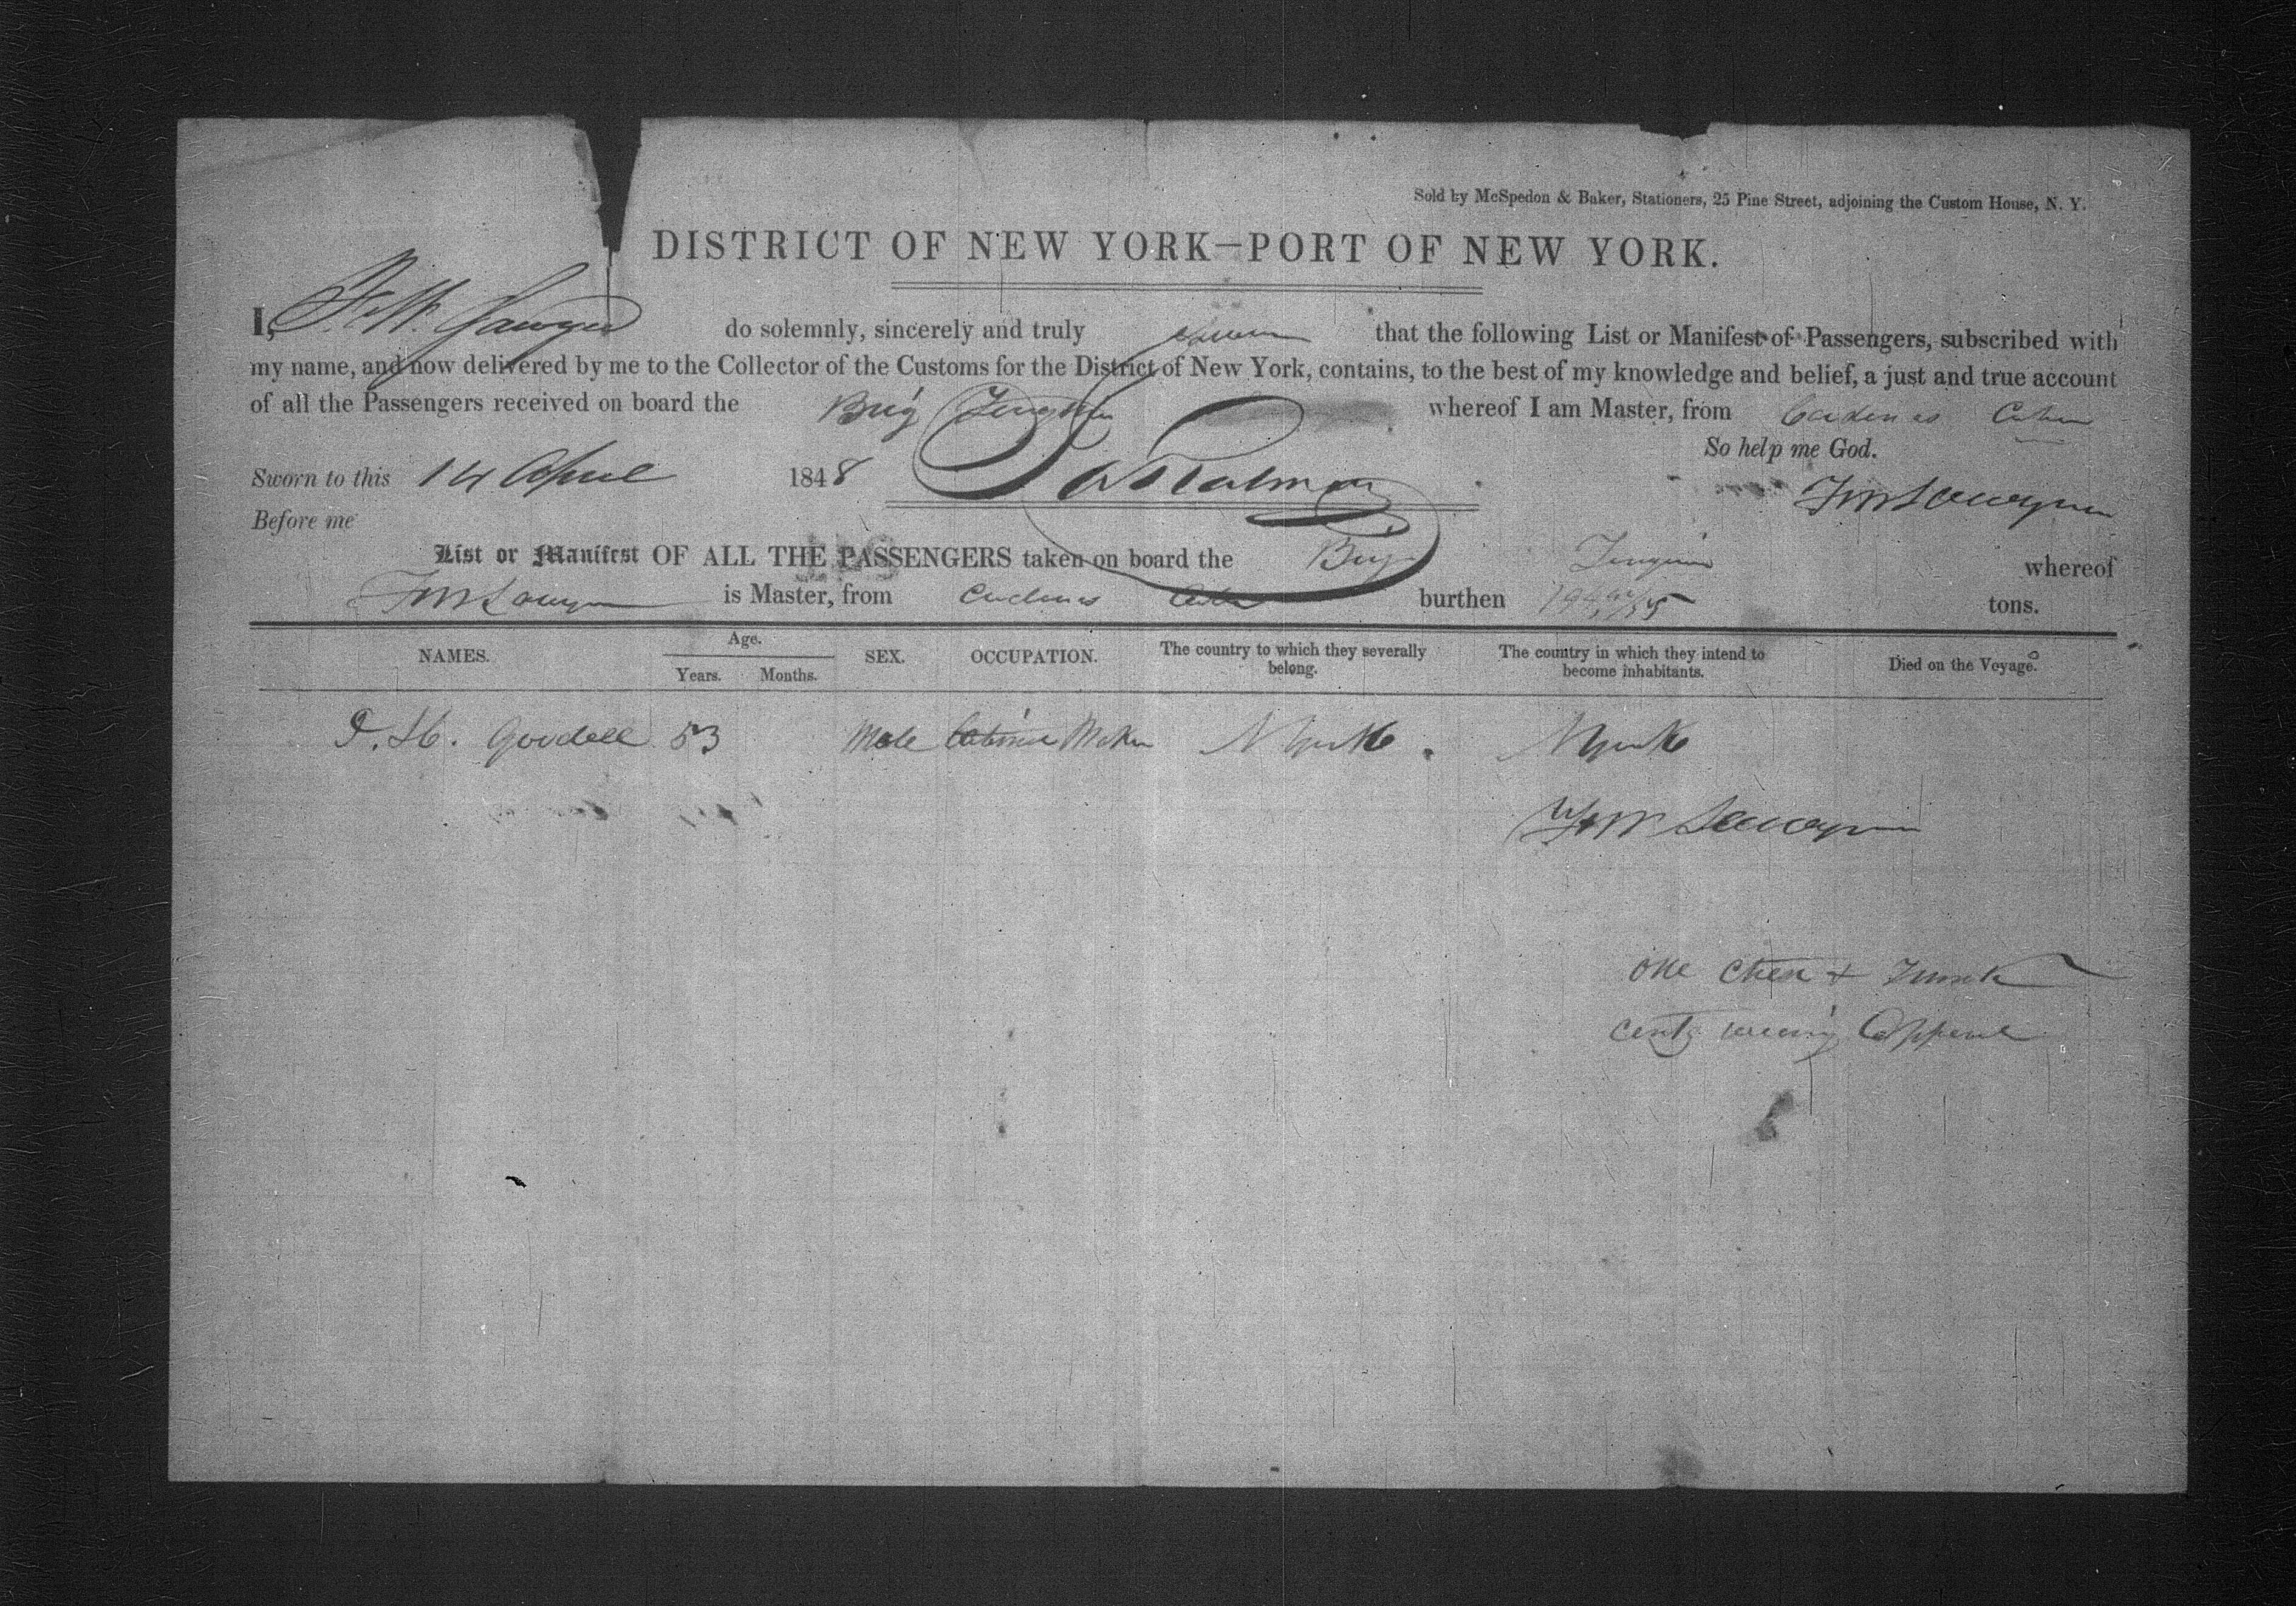 Sold by McSpedon & Baker, Stationers, 25 Pine Street, adjoining the Custom House, N. Y.
DISTRICT OF NEW YORK—PORT OF NEW YORK.
I, F. W. Sawyer do solemnly, sincerely and truly swear that the following List or Manifest of Passengers, subscribed with
my name, and now delivered by me to the Collector of the Customs for the District of New York, contains, to the best of my knowledge and belief, a just and true account
of all the Passengers received on board the Brig whereof I am Master, from Cardenas Cuba
So help me God.
Sworn to this 14 April 1848 F W Sawyer
Before me
List or Manifest OF ALL THE PASSENGERS taken on board the Brig whereof
F W Sawyer is Master, from Cardenas Cuba burthen tons.
NAMES. Age. Years. Months. SEX. OCCUPATION. The country to which they severally belong. The country in which they intend to become inhabitants. Died on the Voyage.
Goodell 53 Male Cabinet Maker N York N York
F W Sawyer
One Chest & Trunk
Contg wearing Apparel